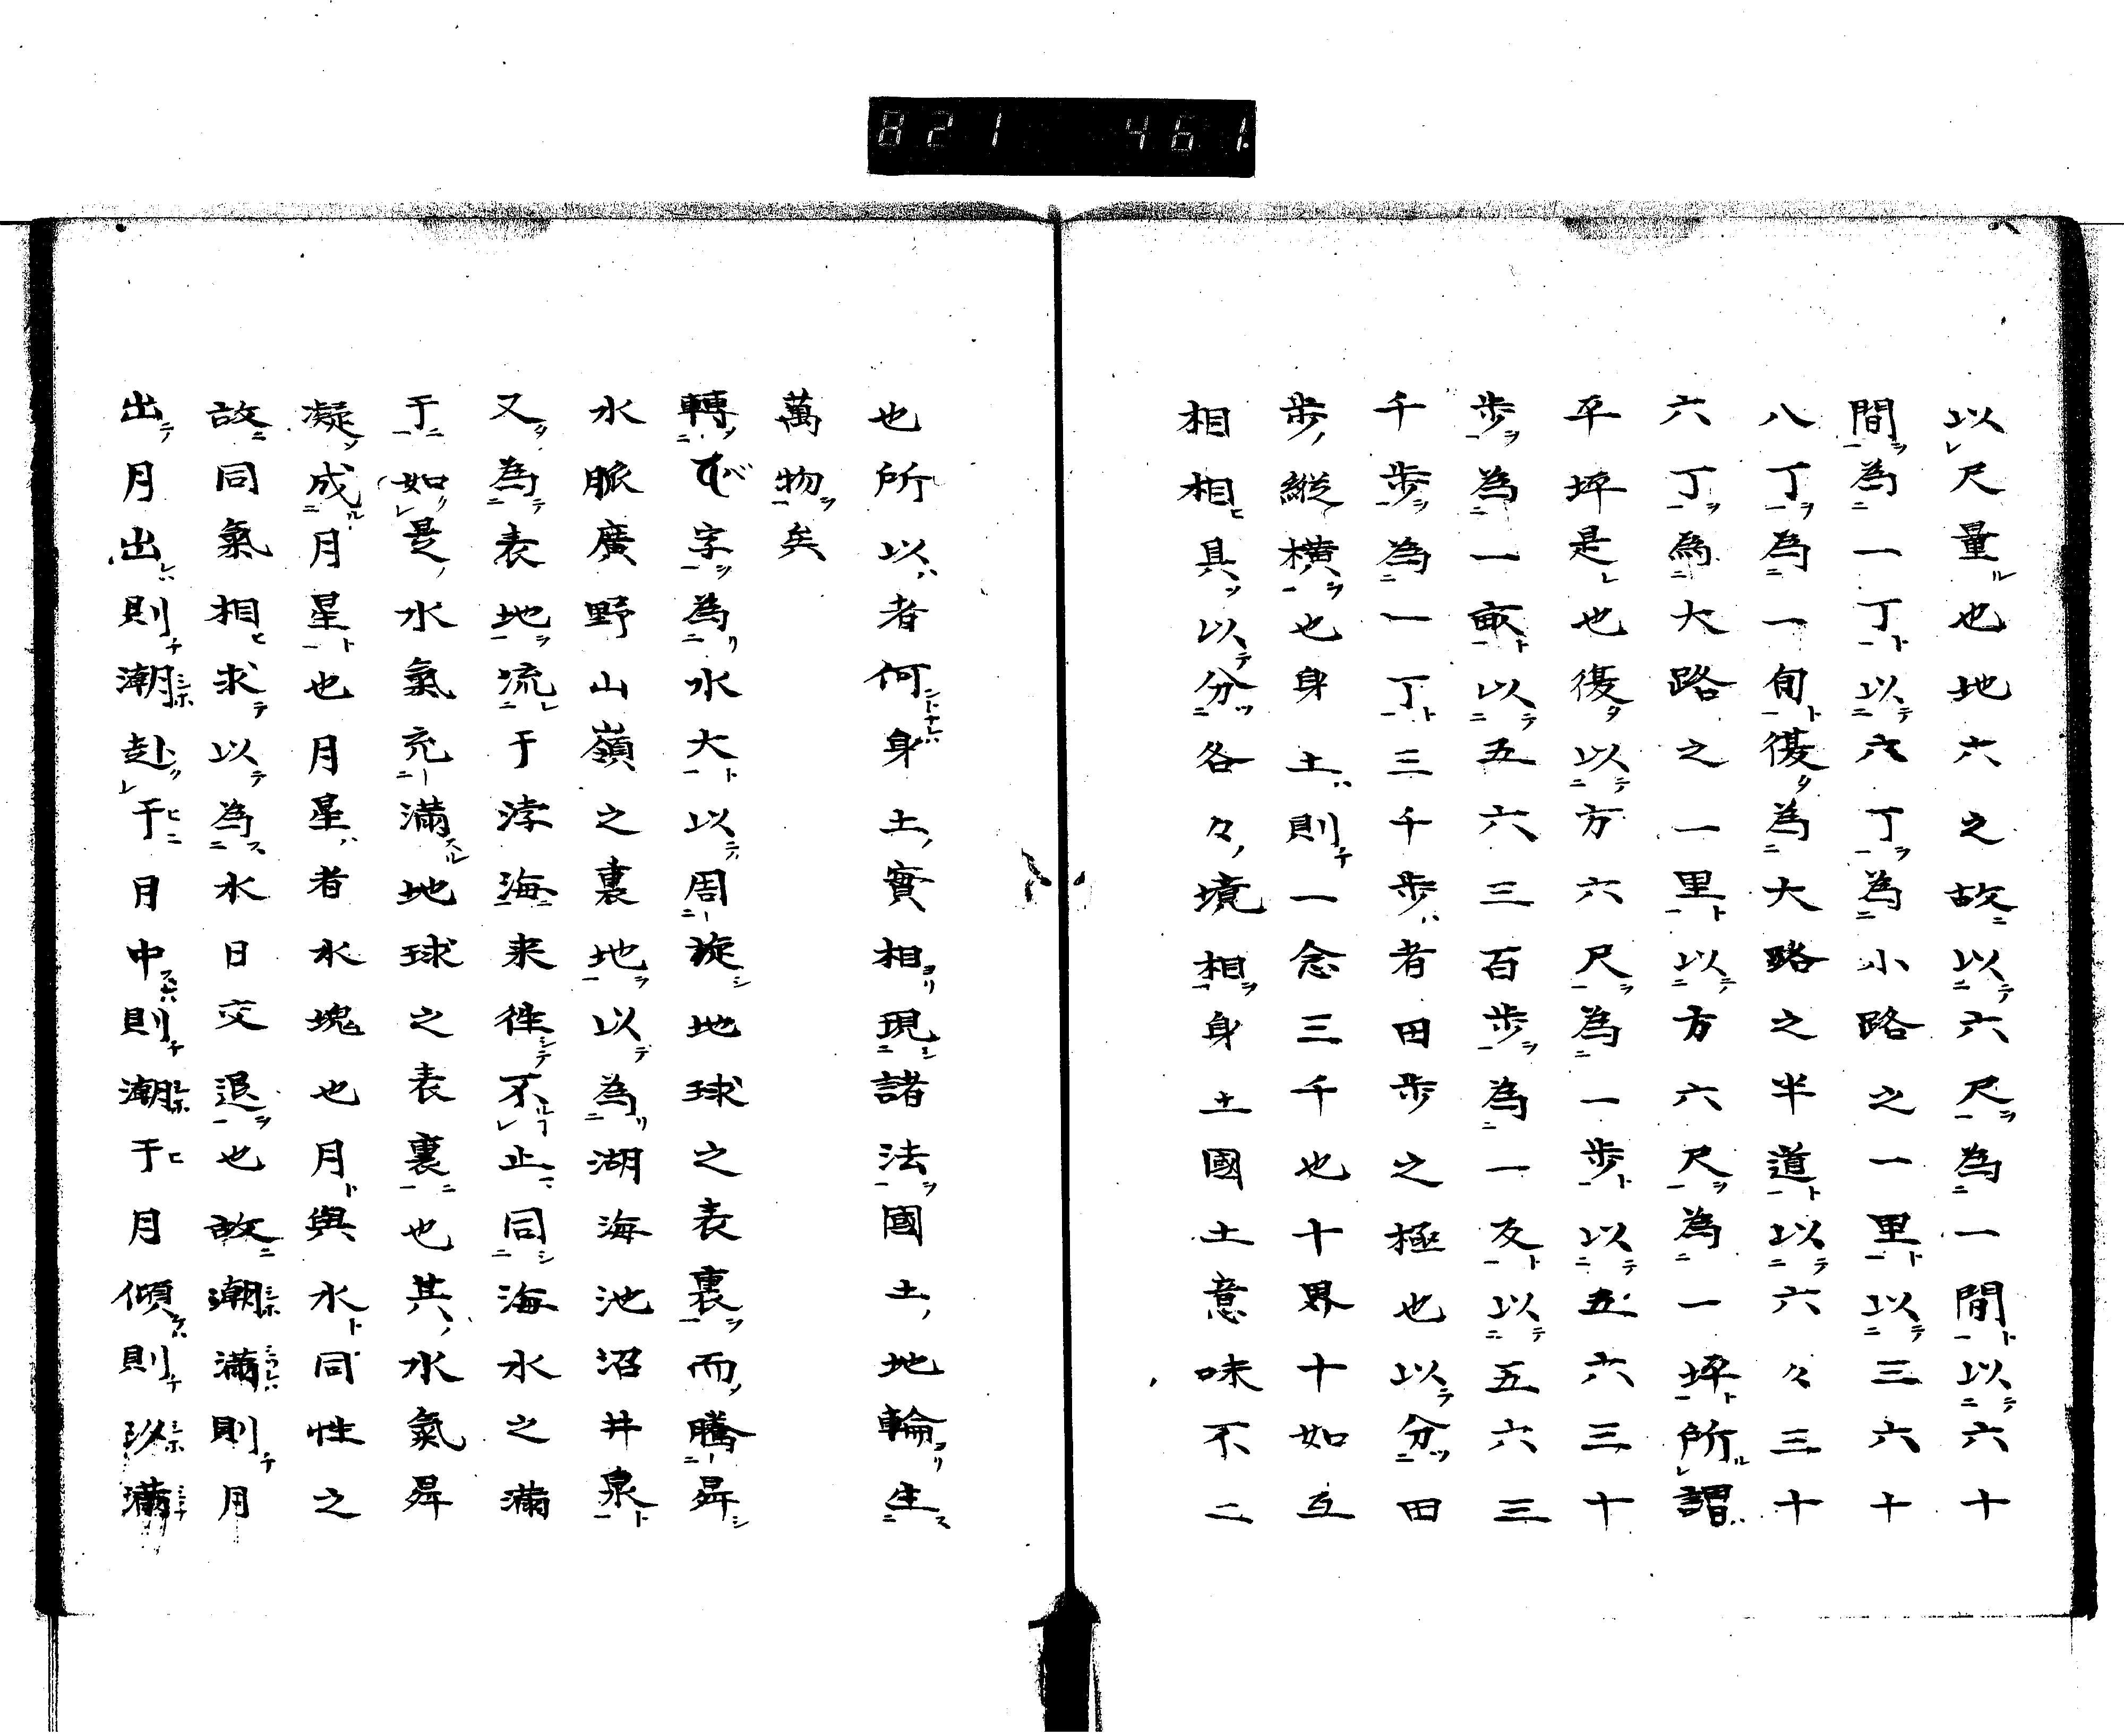 821 461.
以尺量也地六之故以六尺為一間以六十
間為一丁以六丁為小路之一里以三六十
八丁為一旬復為大路之半道以六々三十
六丁為大路之一里以方六尺為一坪所謂
平坪是也復以方六尺為一歩以五六三十
歩為一畝以五六三百歩為一反以五六三
千歩為一丁三千歩者田歩之極也以分田
歩縦横也身土則一念三千也十界十如互
相相具以分各々境相身土國土意味不二
也所以者何身土實相現諸法國土地輪生
萬物矣
轉字為水大以周旋地球之表裏而騰昇
水脈廣野山嶺之裏地以為湖海池沼井泉
又為表地流于浡海来徃不止同海水之滿
于如是水氣充滿地球之表裏也其水氣昇
凝成月星也月星者水塊也月與水同性之
故同氣相求以為水日交退也故潮滿則月
出月出則潮赴于月中則潮于月傾則滿